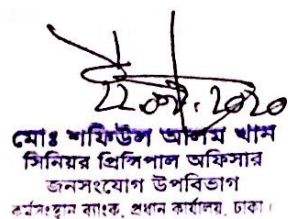 22.০৯.২০২০
মোঃ শফিউল আলম খান
সিনিয়র প্রিন্সিপাল অফিসার
জনসংযোগ উপবিভাগ
কর্মসংস্থান ব্যাংক, প্রধান কার্যালয়, ঢাকা।